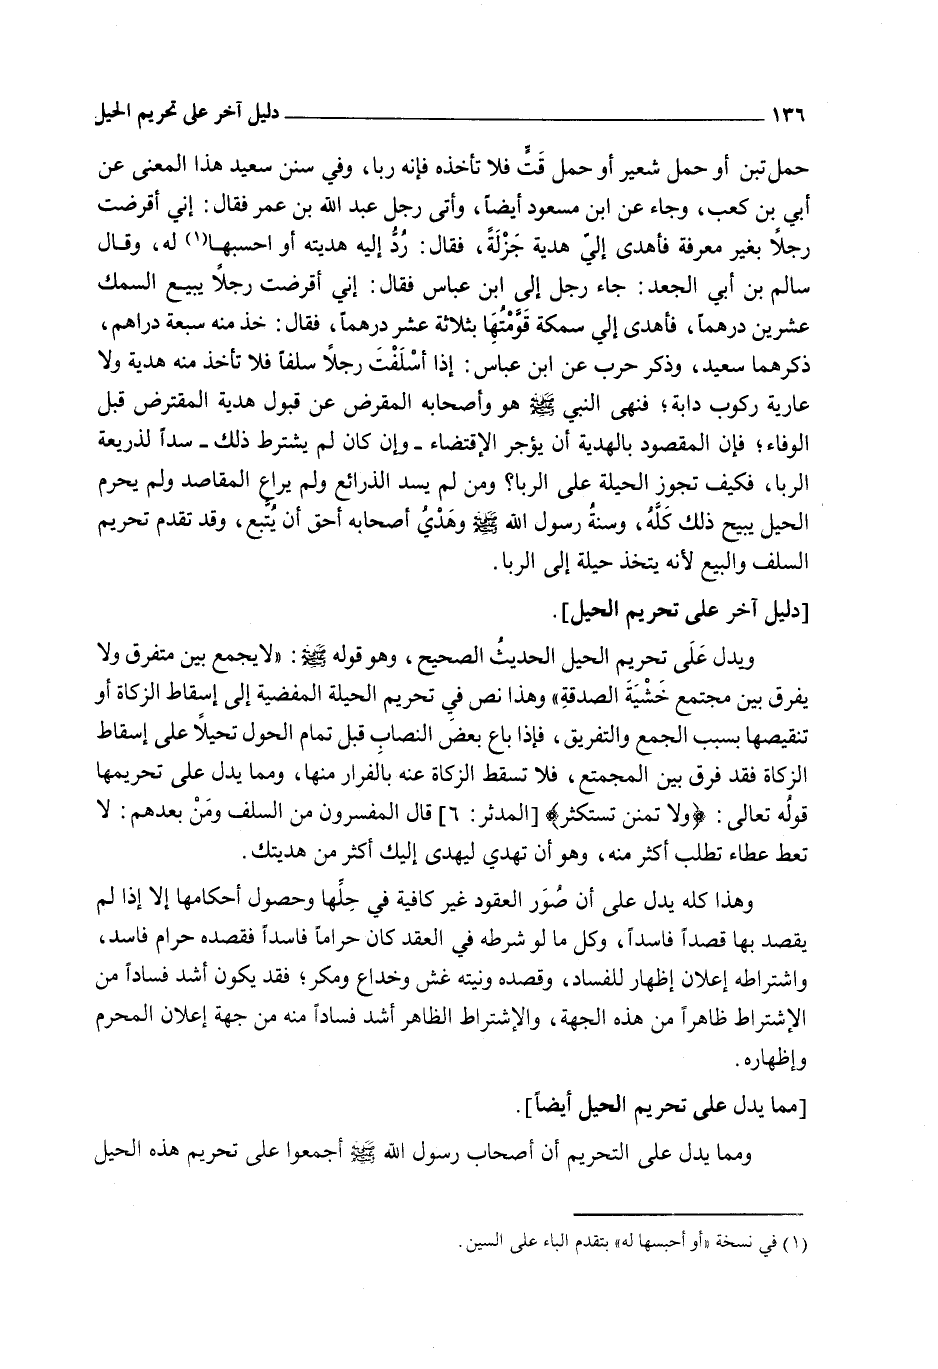 ١٣٦ دليل آخر على تحريم الحيل
حمل تبن أو حمل شعير أو حمل قَتٍّ فلا تأخذه فإنه ربا، وفي سنن سعيد هذا المعنى عن
أبي بن كعب، وجاء عن ابن مسعود أيضاً، وأتى رجل عبد الله بن عمر فقال: إني أقرضت
رجلاً بغير معرفة فأهدى إليّ هدية جَزْلَةً، فقال: رُدَّ إليه هديته أو احسبها(١) له، وقال
سالم بن أبي الجعد: جاء رجل إلى ابن عباس فقال: إني أقرضت رجلاً يبيع السمك
عشرين درهماً، فأهدى إلي سمكة قَوَّمْتُهَا بثلاثة عشر درهماً، فقال: خذ منه سبعة دراهم،
ذكرهما سعيد، وذكر حرب عن ابن عباس: إذا أسْلَفْتَ رجلاً سلفاً فلا تأخذ منه هدية ولا
عارية ركوب دابة؛ فنهى النبي ﷺ هو وأصحابه المقرض عن قبول هدية المقترض قبل
الوفاء؛ فإن المقصود بالهدية أن يؤجر الإقتضاء ـ وإن كان لم يشترط ذلك ـ سداً لذريعة
الربا، فكيف تجوز الحيلة على الربا؟ ومن لم يسد الذرائع ولم يراعِ المقاصد ولم يحرم
الحيل يبيح ذلك كَلَّهُ، وسنةُ رسول الله ﷺ وهَدْيُ أصحابه أحق أن يُتَّبع، وقد تقدم تحريم
السلف والبيع لأنه يتخذ حيلة إلى الربا.
[دليل آخر على تحريم الحيل].
ويدل عَلَى تحريم الحيل الحديثُ الصحيح، وهو قوله ﷺ: «لا يجمع بين متفرق ولا
يفرق بين مجتمع خَشْيَةَ الصدقةِ» وهذا نص في تحريم الحيلة المفضية إلى إسقاط الزكاة أو
تنقيصها بسبب الجمع والتفريق، فإذا باع بعضَ النصابِ قبل تمام الحول تحيلاً على إسقاط
الزكاة فقد فرق بين المجمتع، فلا تسقط الزكاة عنه بالفرار منها، ومما يدل على تحريمها
قولُه تعالى: ﴿ولا تمنن تستكثر﴾ [المدثر: ٦] قال المفسرون من السلف ومَنْ بعدهم: لا
تعط عطاء تطلب أكثر منه، وهو أن تهدي ليهدى إليك أكثر من هديتك.
وهذا كله يدل على أن صُوَر العقود غير كافية في حِلِّها وحصول أحكامها إلا إذا لم
يقصد بها قصداً فاسداً، وكل ما لو شرطه في العقد كان حراماً فاسداً فقصده حرام فاسد،
واشتراطه إعلان إظهار للفساد، وقصده ونيته غش وخداع ومكر؛ فقد يكون أشد فساداً من
الإشتراط ظاهراً من هذه الجهة، والإشتراط الظاهر أشد فساداً منه من جهة إعلان المحرم
وإظهاره.
[مما يدل على تحريم الحيل أيضاً].
ومما يدل على التحريم أن أصحاب رسول الله ﷺ أجمعوا على تحريم هذه الحيل
(١) في نسخة «أو أحبسها له» بتقدم الباء على السين.